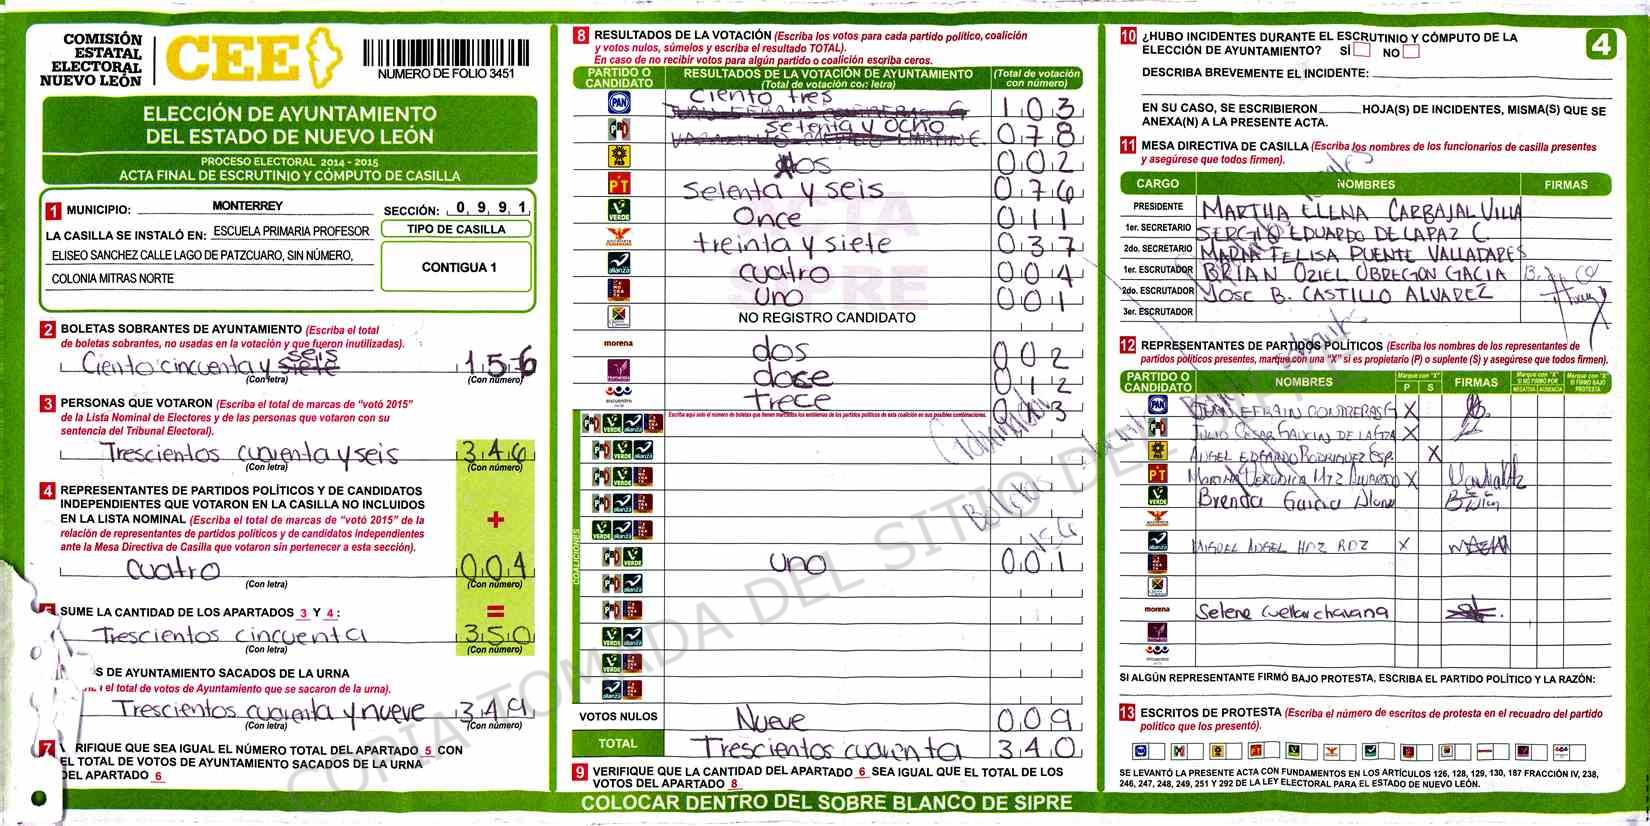 COMISIÓN
ESTATAL
ELECTORAL
NUEVO LEÓN
CEE
NUMERO DE FOLIO 3451
ELECCIÓN DE AYUNTAMIENTO
DEL ESTADO DE NUEVO LEÓN
PROCESO ELECTORAL 2014 - 2015
ACTA FINAL DE ESCRUTINIO Y CÓMPUTO DE CASILLA
1 MUNICIPIO: MONTERREY SECCIÓN: 0 9 9 1
LA CASILLA SE INSTALÓ EN: ESCUELA PRIMARIA PROFESOR
ELISEO SANCHEZ CALLE LAGO DE PATZCUARO, SIN NÚMERO,
COLONIA MITRAS NORTE
TIPO DE CASILLA
CONTIGUA 1
2 BOLETAS SOBRANTES DE AYUNTAMIENTO (Escriba el total
de boletas sobrantes, no usadas en la votación y que fueron inutilizadas).
Ciento cincuenta y siete seis 156
(Con letra) (Con número)
3 PERSONAS QUE VOTARON (Escriba el total de marcas de “votó 2015”
de la Lista Nominal de Electores y de las personas que votaron con su
sentencia del Tribunal Electoral).
Trescientos cuarenta y seis 346
(Con letra) (Con número)
4 REPRESENTANTES DE PARTIDOS POLÍTICOS Y DE CANDIDATOS
INDEPENDIENTES QUE VOTARON EN LA CASILLA NO INCLUIDOS
EN LA LISTA NOMINAL (Escriba el total de marcas de “votó 2015” de la
relación de representantes de partidos políticos y de candidatos independientes
ante la Mesa Directiva de Casilla que votaron sin pertenecer a esta sección).
+
cuatro 004
(Con letra) (Con número)
=
SUME LA CANTIDAD DE LOS APARTADOS 3 Y 4:
Trescientos cincuenta 350
(Con letra) (Con número)
S DE AYUNTAMIENTO SACADOS DE LA URNA
el total de votos de Ayuntamiento que se sacaron de la urna).
Trescientos cuarenta y nueve 349
(Con letra) (Con número)
7 RIFIQUE QUE SEA IGUAL EL NÚMERO TOTAL DEL APARTADO 5 CON
EL TOTAL DE VOTOS DE AYUNTAMIENTO SACADOS DE LA URNA
DEL APARTADO 6
8 RESULTADOS DE LA VOTACIÓN (Escriba los votos para cada partido político, coalición
y votos nulos, súmelos y escriba el resultado TOTAL).
En caso de no recibir votos para algún partido o coalición escriba ceros.
PARTIDO O CANDIDATO
RESULTADOS DE LA VOTACIÓN DE AYUNTAMIENTO
(Total de votación con: letra)
(Total de votación con número)
PAN Ciento tres 103
PRI setenta y ocho 078
PRD dos 002
PT setenta y seis 076
VERDE Once 011
treinta y siete 037
alianza cuatro 004
uno 001
NO REGISTRO CANDIDATO
morena dos 002
doce 012
encuentro trece 013
Escriba aquí solo el número de boletas que tienen marcados los emblemas de los partidos políticos de esta coalición en sus posibles combinaciones.
COALICIONES
PRI VERDE uno 001
Boletas
156
VOTOS NULOS Nueve 009
TOTAL Trescientos cuarenta 340
9 VERIFIQUE QUE LA CANTIDAD DEL APARTADO 6 SEA IGUAL QUE EL TOTAL DE LOS
VOTOS DEL APARTADO 8
COLOCAR DENTRO DEL SOBRE BLANCO DE SIPRE
10 ¿HUBO INCIDENTES DURANTE EL ESCRUTINIO Y CÓMPUTO DE LA
ELECCIÓN DE AYUNTAMIENTO? SÍ NO
4
DESCRIBA BREVEMENTE EL INCIDENTE:
EN SU CASO, SE ESCRIBIERON HOJA(S) DE INCIDENTES, MISMA(S) QUE SE
ANEXA(N) A LA PRESENTE ACTA.
11 MESA DIRECTIVA DE CASILLA (Escriba los nombres de los funcionarios de casilla presentes
y asegúrese que todos firmen).
CARGO NOMBRES FIRMAS
PRESIDENTE MARTHA ELENA CARBAJAL VILLA
1er. SECRETARIO SERGIO EDUARDO DE LA PAZ C
2do. SECRETARIO MARIA FELISA PUENTE VALLADARES
1er. ESCRUTADOR BRIAN OZIEL OBREGON GACIA
2do. ESCRUTADOR JOSE B. CASTILLO ALVAREZ
3er. ESCRUTADOR
12 REPRESENTANTES DE PARTIDOS POLÍTICOS (Escriba los nombres de los representantes de
partidos políticos presentes, marque con una “X” si es propietario (P) o suplente (S) y asegúrese que todos firmen).
PARTIDO O CANDIDATO
NOMBRES
Marque con "X"
P S
FIRMAS
Marque con "X" SI NO FIRMÓ POR NEGATIVA AUSENCIA
Marque con "X" SI FIRMÓ BAJO PROTESTA
PAN JUAN EFRAIN CONTRERAS G X
PRI JULIO CESAR DE LA X
PRD ANGEL EDGARDO RODRIGUEZ ESP. X
PT MARTHA VERONICA MTZ ALVARADO X
VERDE Brenda Garcia
alianza MIGUEL ANGEL HDZ RDZ X
morena Selene Cuellar chavana
encuentro
SI ALGÚN REPRESENTANTE FIRMÓ BAJO PROTESTA, ESCRIBA EL PARTIDO POLÍTICO Y LA RAZÓN:
13 ESCRITOS DE PROTESTA (Escriba el número de escritos de protesta en el recuadro del partido
político que los presentó).
SE LEVANTÓ LA PRESENTE ACTA CON FUNDAMENTOS EN LOS ARTÍCULOS 126, 128, 129, 130, 187 FRACCIÓN IV, 238,
246, 247, 248, 249, 251 Y 292 DE LA LEY ELECTORAL PARA EL ESTADO DE NUEVO LEÓN.
ACTA
SIPRE
COPIA TOMADA DEL SITIO DEL